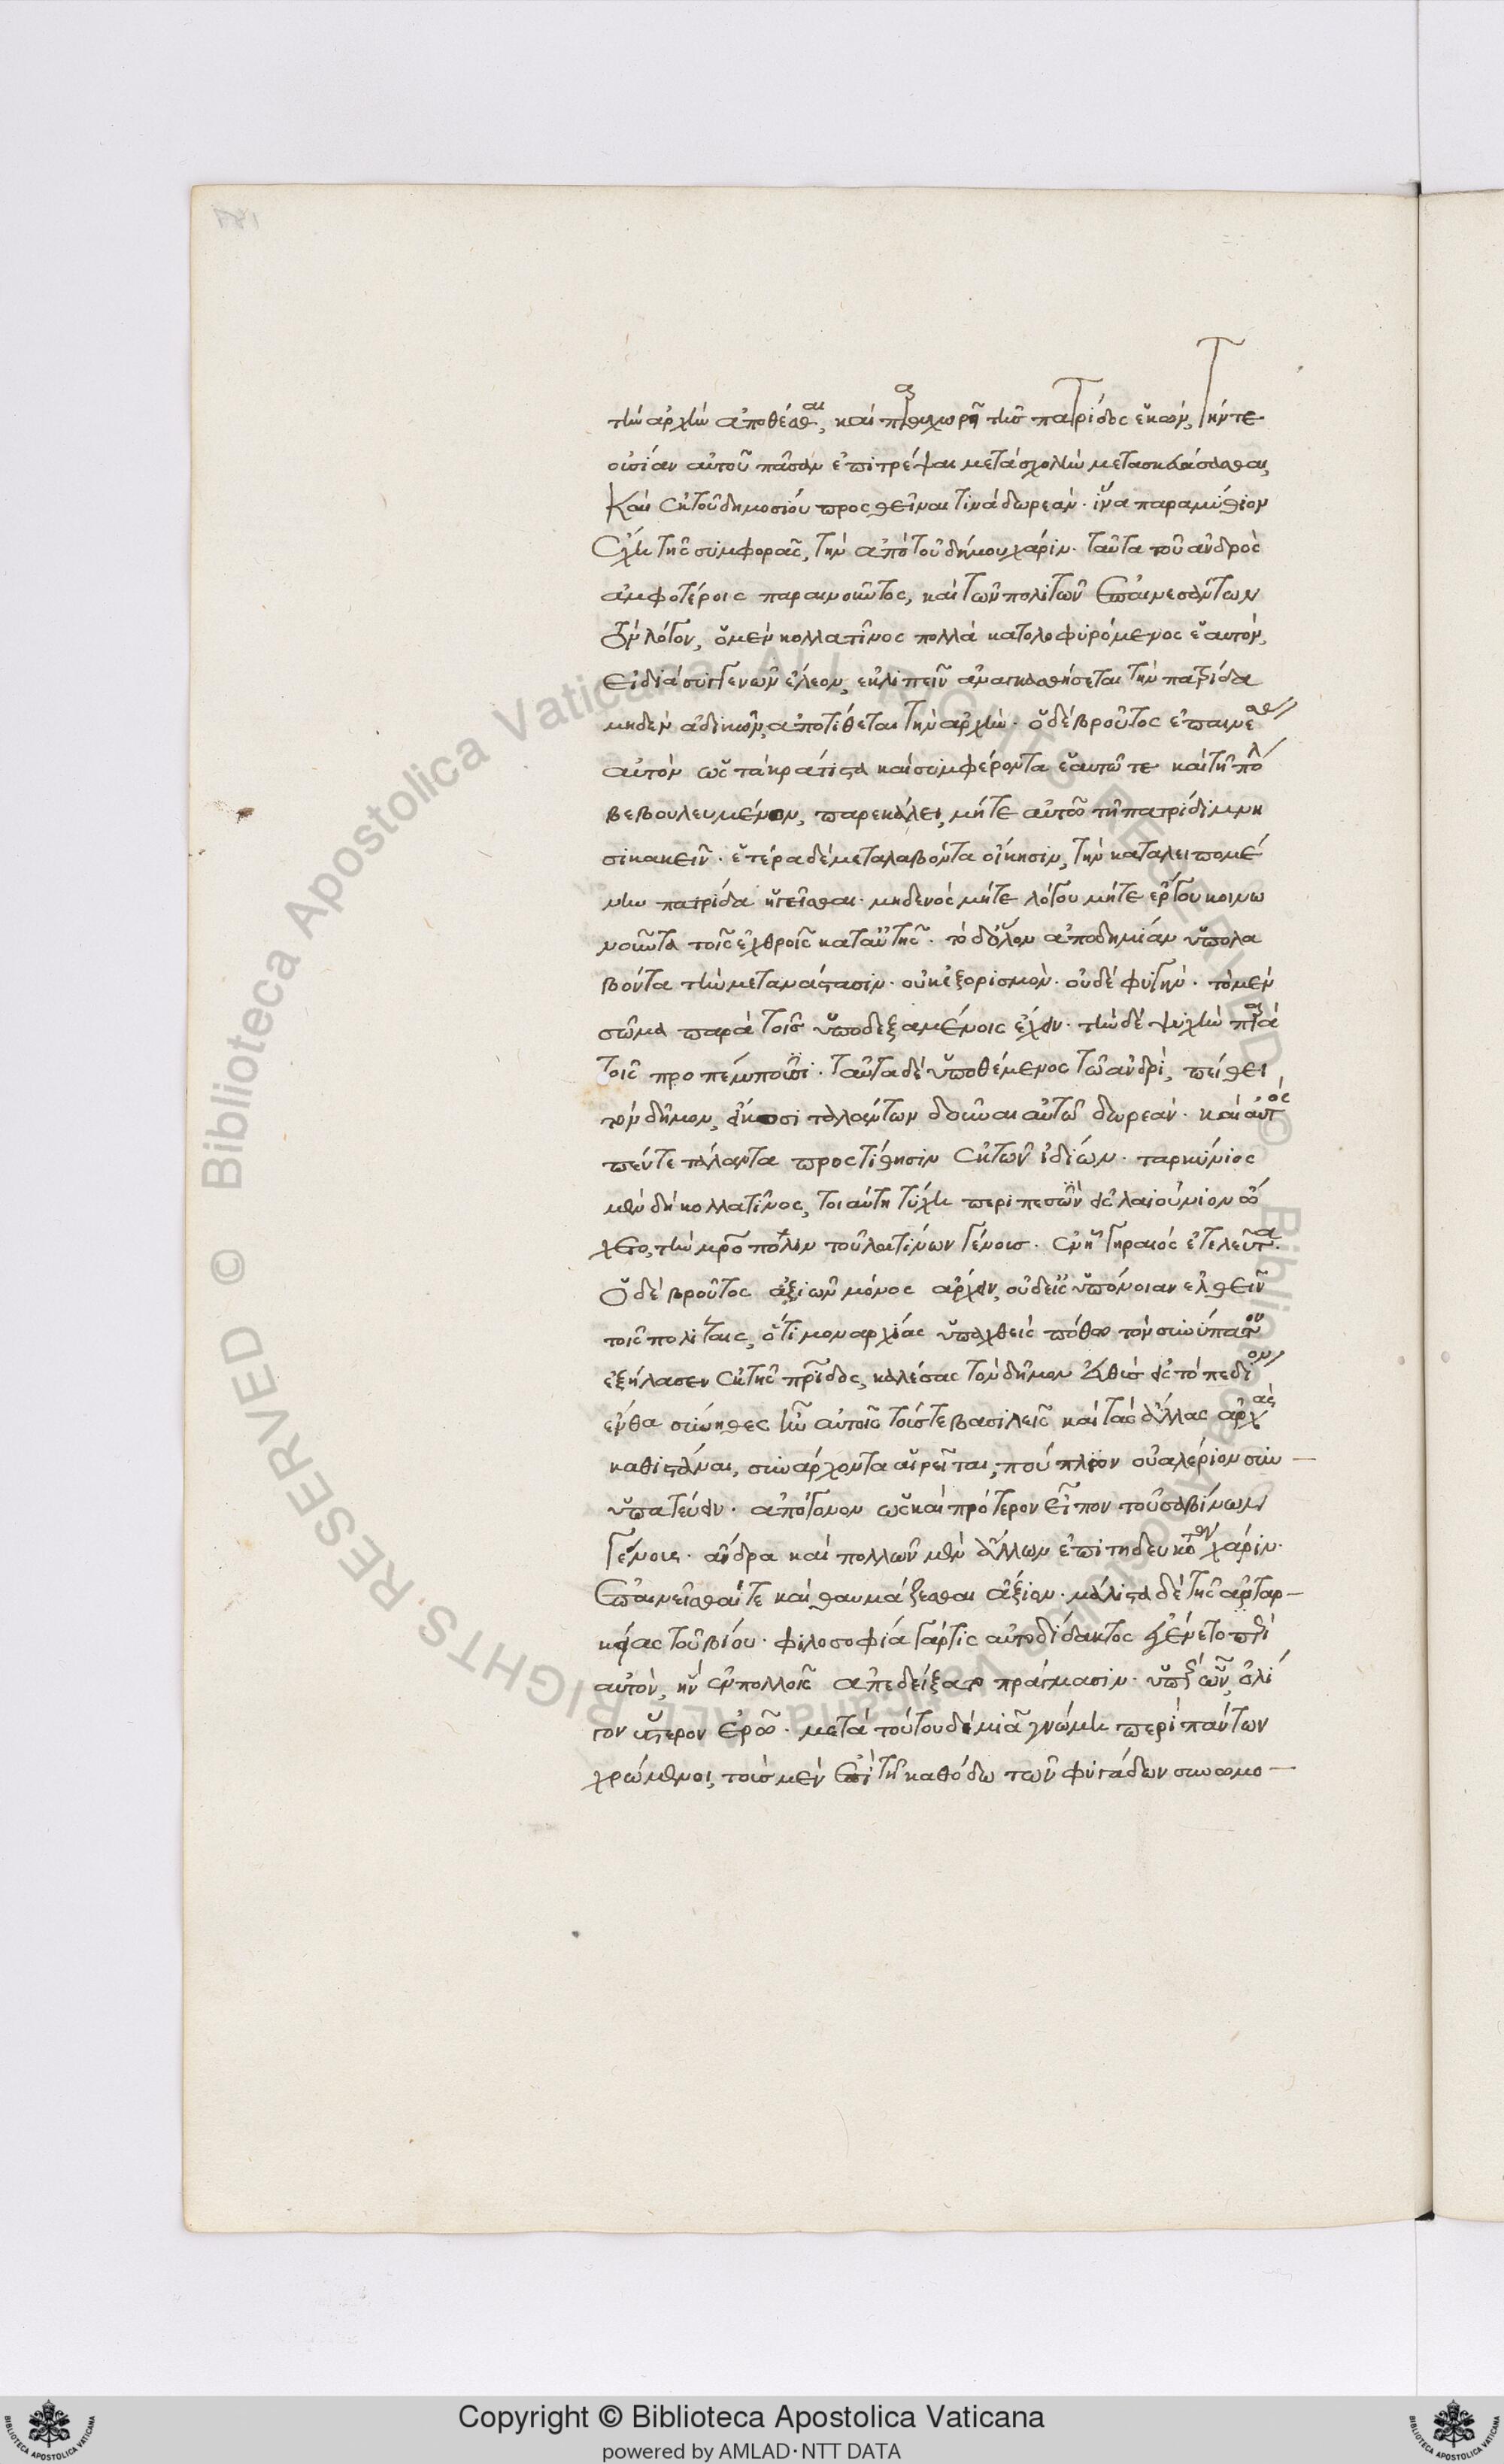 τὴν ἀρχὴν ἀποθέσθαι, καὶ παραχωρῆσαι τῆς πατρίδος ἑκών, τήν τε
οὐσίαν αὐτοῦ πᾶσαν ἐπιτρέψαι μετὰ σχολὴν μετασκευάσασθαι,
Καὶ ἐκ τοῦ δημοσίου προσθεῖναι τινὰ δωρεάν· ἵνα παραμύθιον
ἔχῃ τῆς συμφορᾶς, τὴν ἀπὸ τοῦ δήμου χάριν. ταῦτα τοῦ ἀνδρὸς
ἀμφοτέροις παραινοῦντος, καὶ τῶν πολιτῶν ἐπαινεσάντων
τὸν λόγον, ὁ μὲν κολλατῖνος πολλὰ κατολοφυρόμενος ἑαυτόν,
εἰ διὰ συγγενῶν ἔλεον, ἐκλιπεῖν ἀναγκασθήσεται τὴν πατρίδα
μηδὲν ἀδικῶν, ἀποτίθεται τὴν ἀρχήν· ὁ δὲ βροῦτος ἐπαινέσας
αὐτὸν ὡς τὰ κράτιστα καὶ συμφέροντα ἑαυτῶ τε καὶ τῆ πόλ
βεβουλευμένον, παρεκάλει, μήτε αὐτῶ τῆ πατρίδι μνη
σικακεῖν· ἑτέρα δὲ μεταλαβόντα οἴκησιν, τὴν καταλειπομέ
νην πατρίδα ἡγεῖσθαι· μηδενὸς μήτε λόγου μήτε ἔργου κοινω
νοῦντα τοῖς ἐχθροῖς κατ' αὐτῆς· τὸ δ' ὅλον ἀποδημίαν ὑπολα
βόντα τὴν μετανάστασιν· οὐκ ἐξορισμὸν· οὐδὲ φυγήν· τὸ μὲν
σῶμα παρὰ τοῖς ὑποδεξαμένοις ἔχειν· τὴν δὲ ψυχὴν παρὰ
τοῖς προπέμπουσι· ταῦτα δὲ ὑποθέμενος τῶ ἀνδρὶ, πείθει
τὸν δῆμον, εἴκοσι ταλάντων δοῦναι αὐτῶ δωρεάν· καὶ αὐτός
πέντε τάλαντα προστίθησιν ἐκ τῶν ἰδίων. ταρκύνιος
μὲν δὴ κολλατῖνος, τοιαύτη τύχη περιπεσὼν εἰς λαιούνιον ὤ
χετο, τὴν μρο πόλιν τοῦ λατίνων γένους· ἐν ἧ γηραιός ἐτελεύτα.
Ὁ δὲ βροῦτος ἀξιῶν μόνος ἄρχειν, οὐδ' εἰς ὑπόνοιαν ἐλθεῖν
τοῖς πολίταις, ὅτι μοναρχίας ὑπαχθεὶς πόθω τὸν συνύπατον
ἐξήλασεν ἐκ τῆς πατρίδος, καλέσας τὸν δῆμον εὐθὺς εἰς τὸ πεδίον
ἔνθα σύνηθες ἦν αὐτοῖς τούς τε βασιλεῖς καὶ τὰς ἄλλας ἀρχὰς
καθιστάναι, συνάρχοντα αἱρεῖται, πούπλιον οὐαλέριον συν –
υπατεύειν· ἀπόγονον ὡς καὶ πρότερον εἶπον τοῦ σαβίνων
γένους· ἄνδρα καὶ πολλῶν μὲν ἄλλων ἐπιτηδευμάτων χάριν.
ἐπαινεῖσθαί τε καὶ θαυμάζεσθαι ἄξιον· μάλιστα δὲ τῆς αὐταρ –
κείας τοῦ βίου· φιλοσοφία γάρ τις αὐτοδίδακτος ἐγένετο περὶ
αὐτὸν, ἣν ἐν πολλοῖς ἀπεδείξατο πράγμασιν· ὑπὲρ ὧν, ὀλί
γον ὕστερον ἐρῶ. μετὰ τούτου δὲ μιᾶ γνώμη περὶ πάντων
χρώμενοι, τοὺς μὲν ἐπὶ τῆ καθόδω τῶν φυγάδων συνωμο –
Copyright © Biblioteca Apostolica Vaticana
powered by AMLAD·NTT DATA